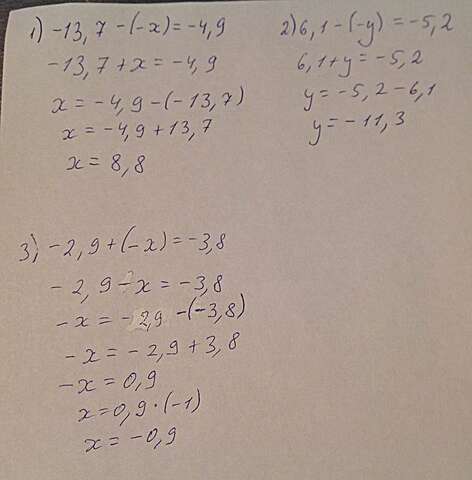 1) -13,7 -(-x)= -4,9
-13,7 + x = -4,9
x = -4,9 -(-13,7)
x = -4,9 + 13,7
x = 8,8
2) 6,1 -(-y) = -5,2
6,1 + y = -5,2
y = -5,2 - 6,1
y = -11,3
3) -2,9 +(-x)= -3,8
-2,9 - x = -3,8
-x = -2,9 -(-3,8)
-x = -2,9 + 3,8
-x = 0,9
x = 0,9·(-1)
x = -0,9